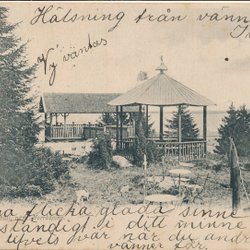 Hälsning från vänn
Vy väntas
flicka glada sinne
ständigt i ditt minne
lifvets vår när du an
vänner får